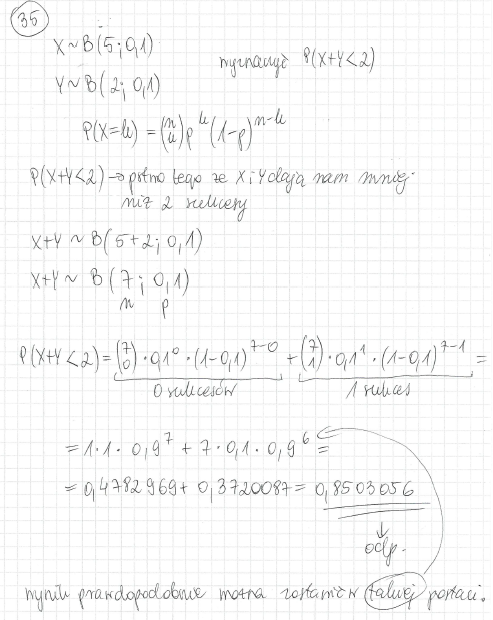 35
X ~ B(5; 0,1)
Y ~ B(2; 0,1)
wyznaczyć P(X+Y<2)
P(X=k) = (n k) p^k (1-p)^{n-k}
P(X+Y<2) → prbwo tego ze X i Y dają nam mniej
niż 2 sukcesy
X+Y ~ B(5+2; 0,1)
X+Y ~ B(7; 0,1)
n p
P(X+Y<2) = (7 0) · 0,1^0 · (1-0,1)^{7-0} + (7 1) · 0,1^1 · (1-0,1)^{7-1} =
0 sukcesów 1 sukces
= 1·1· 0,9^7 + 7·0,1·0,9^6 =
= 0,4782969 + 0,3720087 = 0,8503056
odp.
wynik prawdopodobnie można zostawić w takiej postaci.